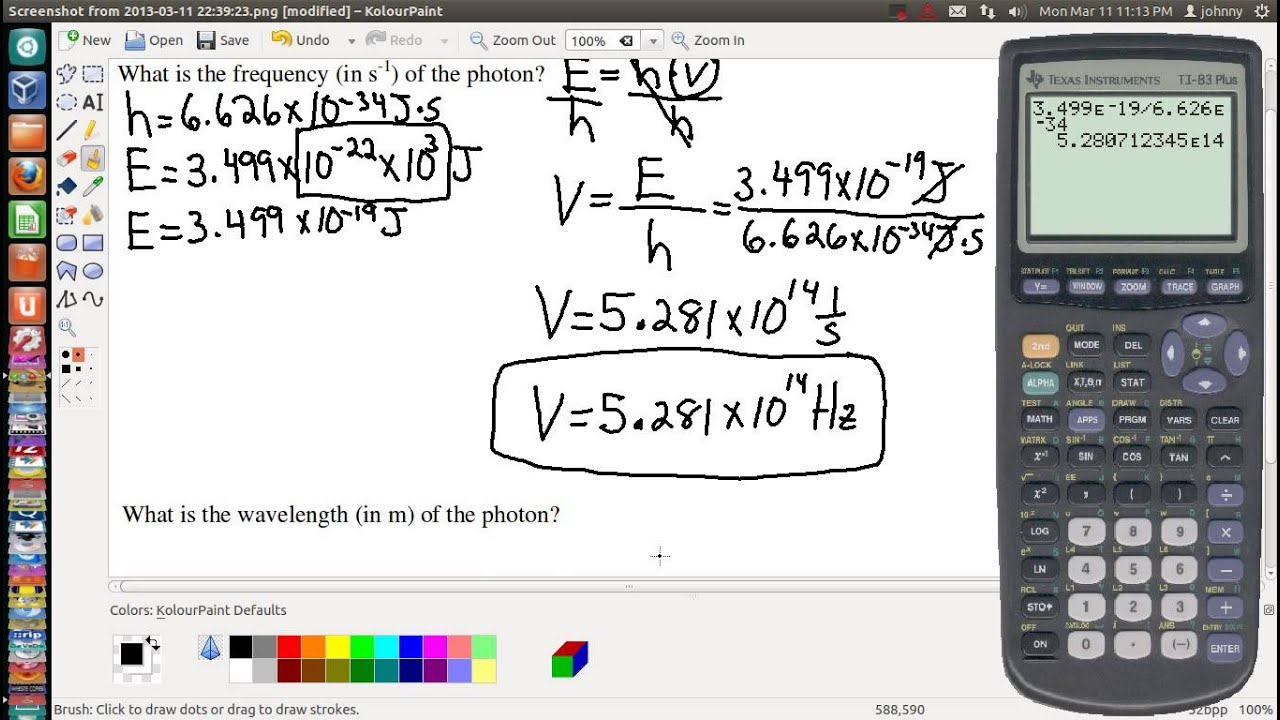 Screenshot from 2013-03-11 22:39:23.png [modified] – KolourPaint
Mon Mar 11 11:13 PM johnny
New Open Save Undo Redo Zoom Out 100% Zoom In
What is the frequency (in s⁻¹) of the photon?
h=6.626×10⁻³⁴J·s
E=3.499×10⁻²²×10³J
E=3.499×10⁻¹⁹J
E = h(V)
h h
V = E = 3.499×10⁻¹⁹J
h 6.626×10⁻³⁴J·s
V=5.281×10¹⁴ 1/s
V=5.281×10¹⁴Hz
What is the wavelength (in m) of the photon?
Colors: KolourPaint Defaults
Brush: Click to draw dots or drag to draw strokes.
588,590
32bpp 100%
TEXAS INSTRUMENTS TI-83 Plus
3.499E-19/6.626E
-34
5.280712345E14
STATPLOT F1 TBLSET F2 FORMAT F3 CALC F4 TABLE F5
Y= WINDOW ZOOM TRACE GRAPH
QUIT INS
2nd MODE DEL
A-LOCK LINK LIST
ALPHA X,T,θ,n STAT
TEST A ANGLE B DRAW C DISTR
MATH APPS PRGM VARS CLEAR
MATRX D SIN⁻¹ E COS⁻¹ F TAN⁻¹ G π H
x⁻¹ SIN COS TAN ^
√ I EE J { K } L e M
x² , ( ) ÷
10ˣ N u O v P w Q [ R
LOG 7 8 9 ×
eˣ S L4 T L5 U L6 V ] W
LN 4 5 6 −
RCL X L1 Y L2 Z L3 θ MEM "
STO▸ 1 2 3 +
OFF CATALOG i : ANS ? ENTRY SOLVE
ON 0 . (−) ENTER